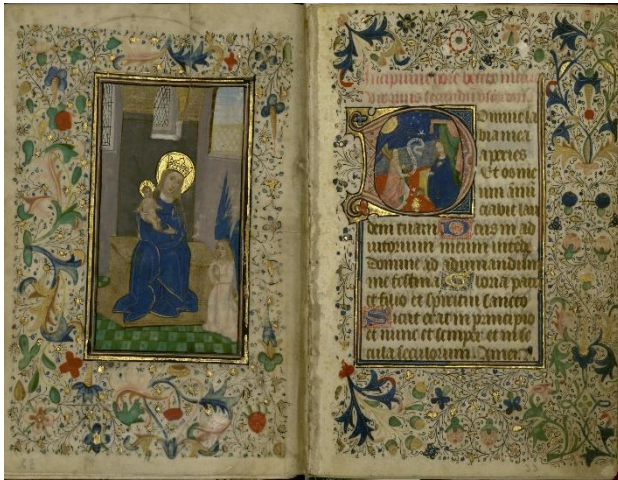 Incipiunt hore beate marie
virginis secundum usum rom
Domine la
bia mea
aperies
Et os me
um annu
ciabit lau
dem tuam Deus in ad
iutorium meum intende
Domine ad adiuuandum
me festina Gloria patri
et filio et spiritui sancto
Sicut erat in principio
et nunc et semper et in se
cula seculorum Amen